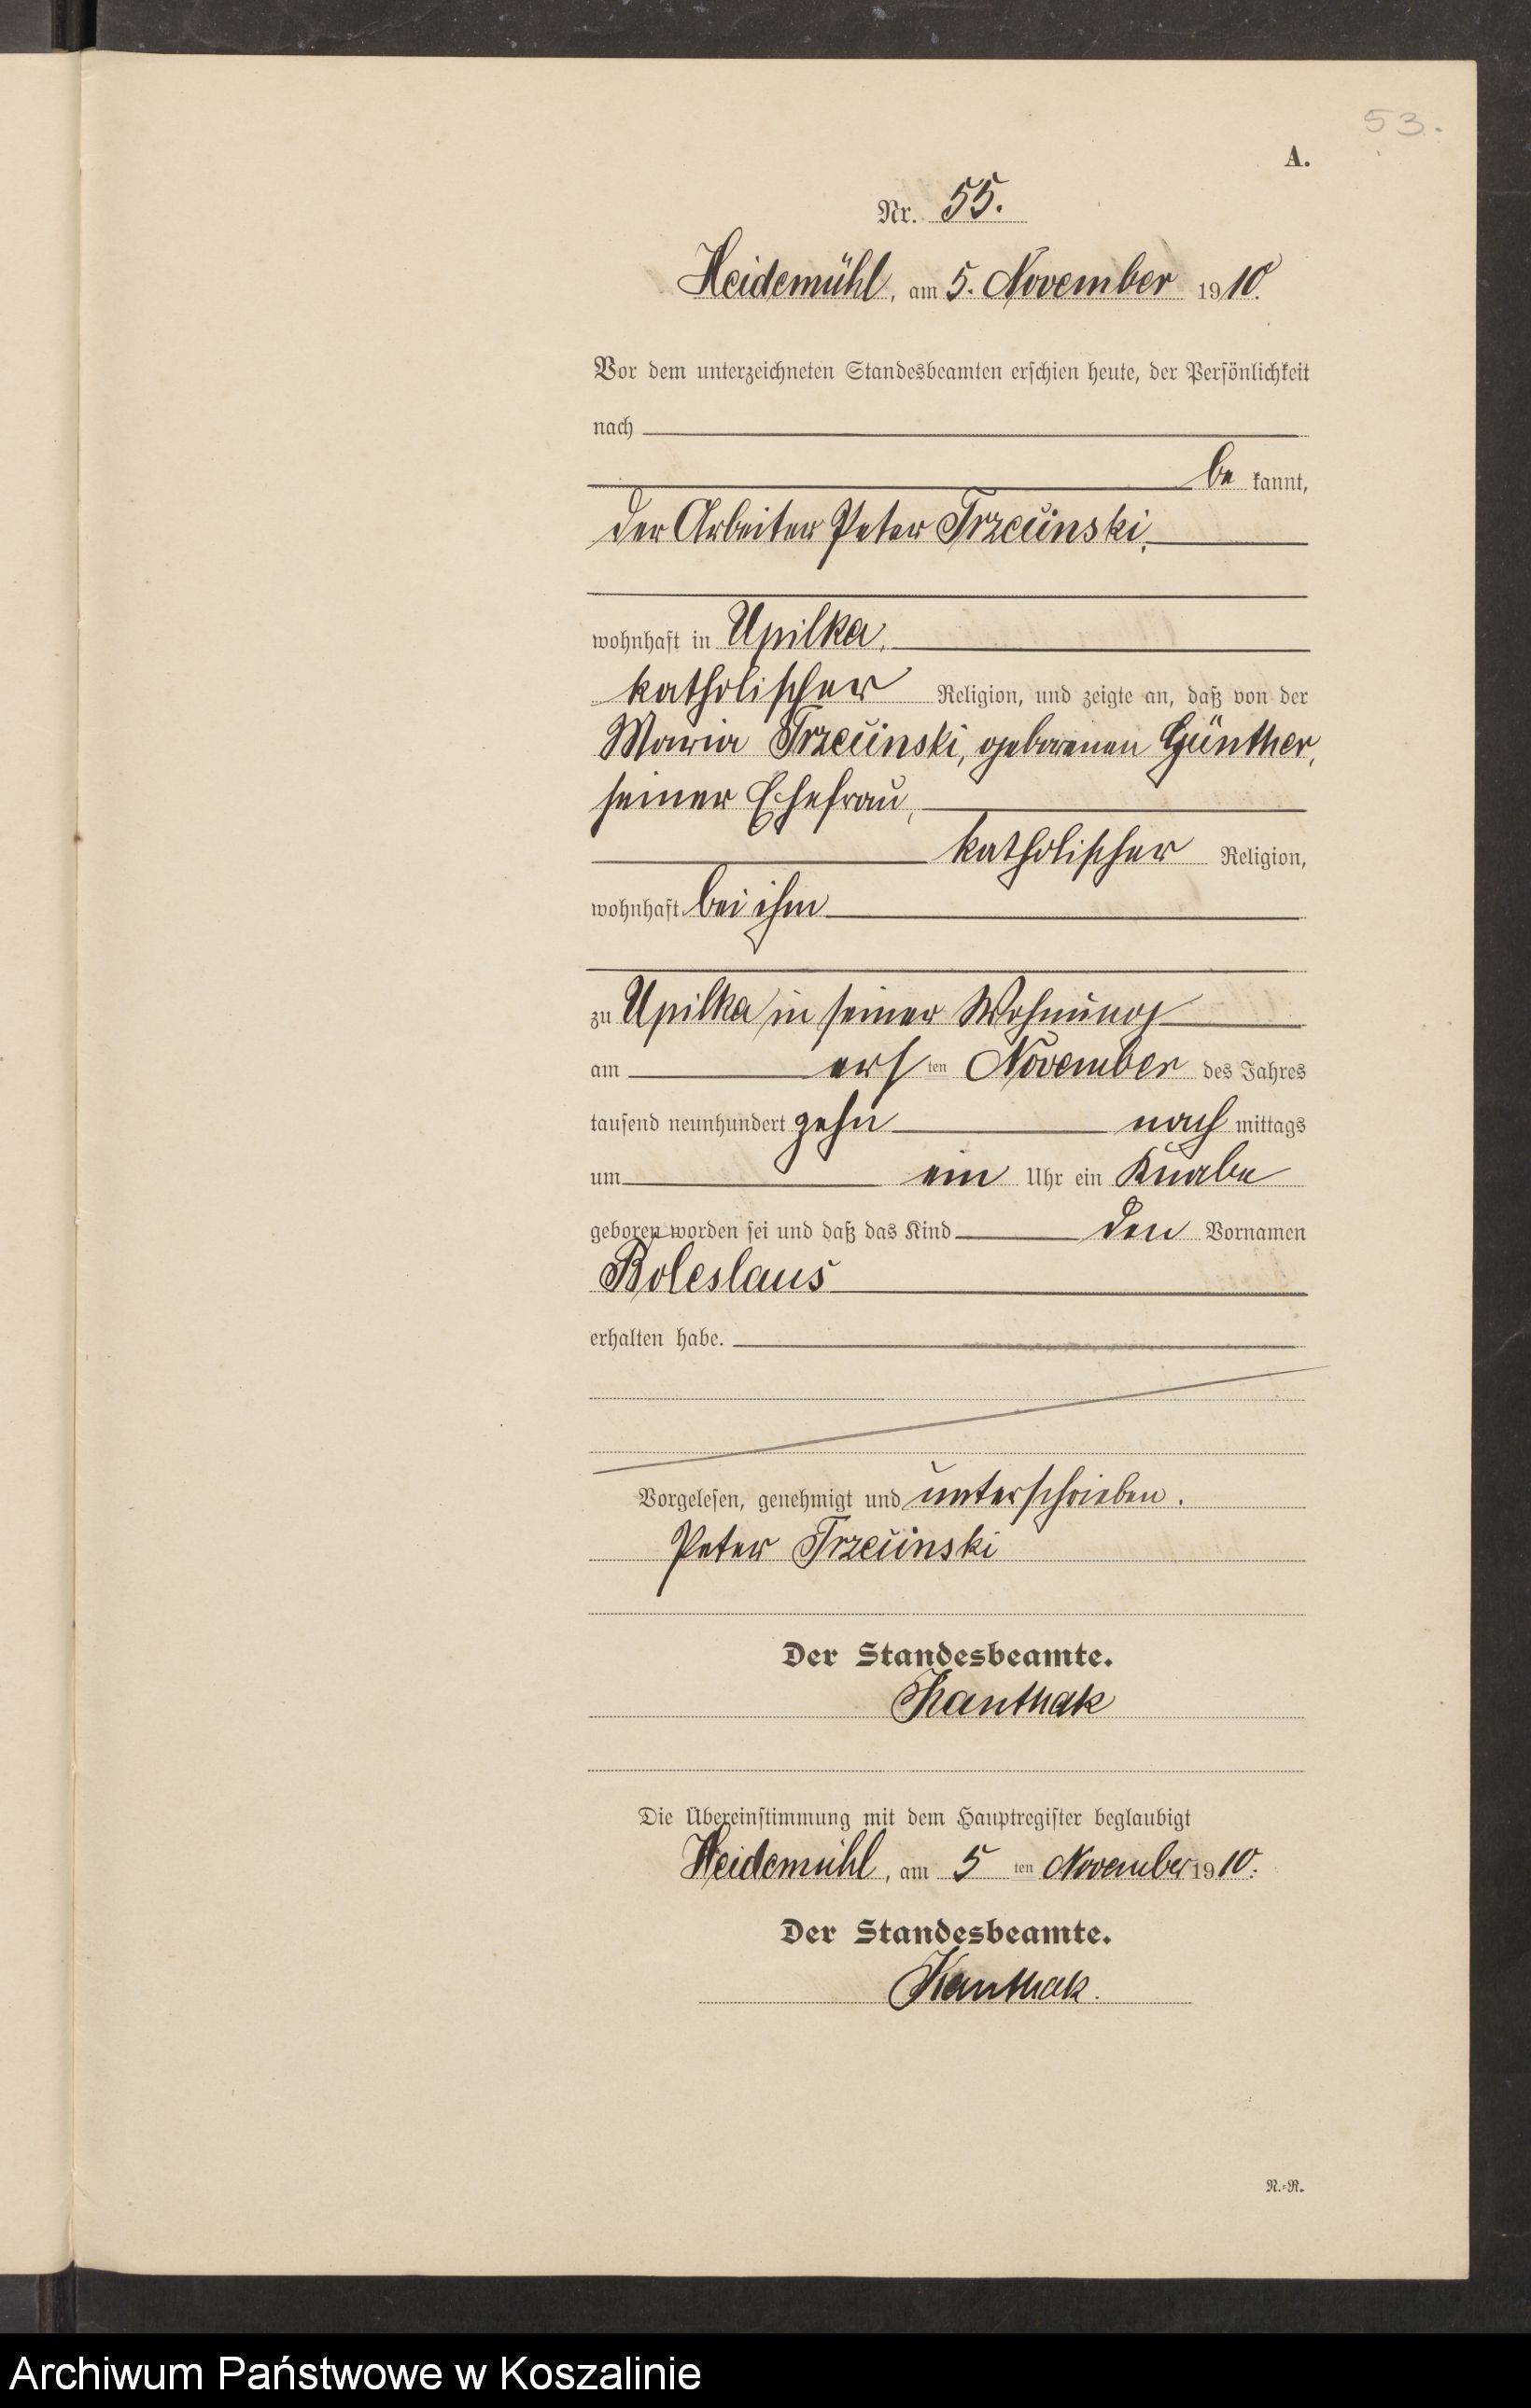 53.
A.
Nr. 55.
Heidemühl, am 5. November 1910.
Vor dem unterzeichneten Standesbeamten erschien heute, der Persönlichkeit
nach
be kannt,
der Arbeiter Peter Trzeŭinski,
wohnhaft in Upilka,
katholischer Religion, und zeigte an, daß von der
Maria Trzeŭinski, geborenen Günther,
seiner Ehefrau,
katholischer Religion,
wohnhaft bei ihm
zu Upilka in seiner Wohnung
am ersten November des Jahres
tausend neunhundert zehn nachmittags
um ein Uhr ein Knabe
geboren worden sei und daß das Kind den Vornamen
Boleslaus
erhalten habe.
Vorgelesen, genehmigt und unterschrieben.
Peter Trzeŭinski
Der Standesbeamte.
Kanthak
Die Übereinstimmung mit dem Hauptregister beglaubigt
Heidemühl, am 5 ten November 1910.
Der Standesbeamte.
Kanthak.
N.-R.
Archiwum Państwowe w Koszalinie